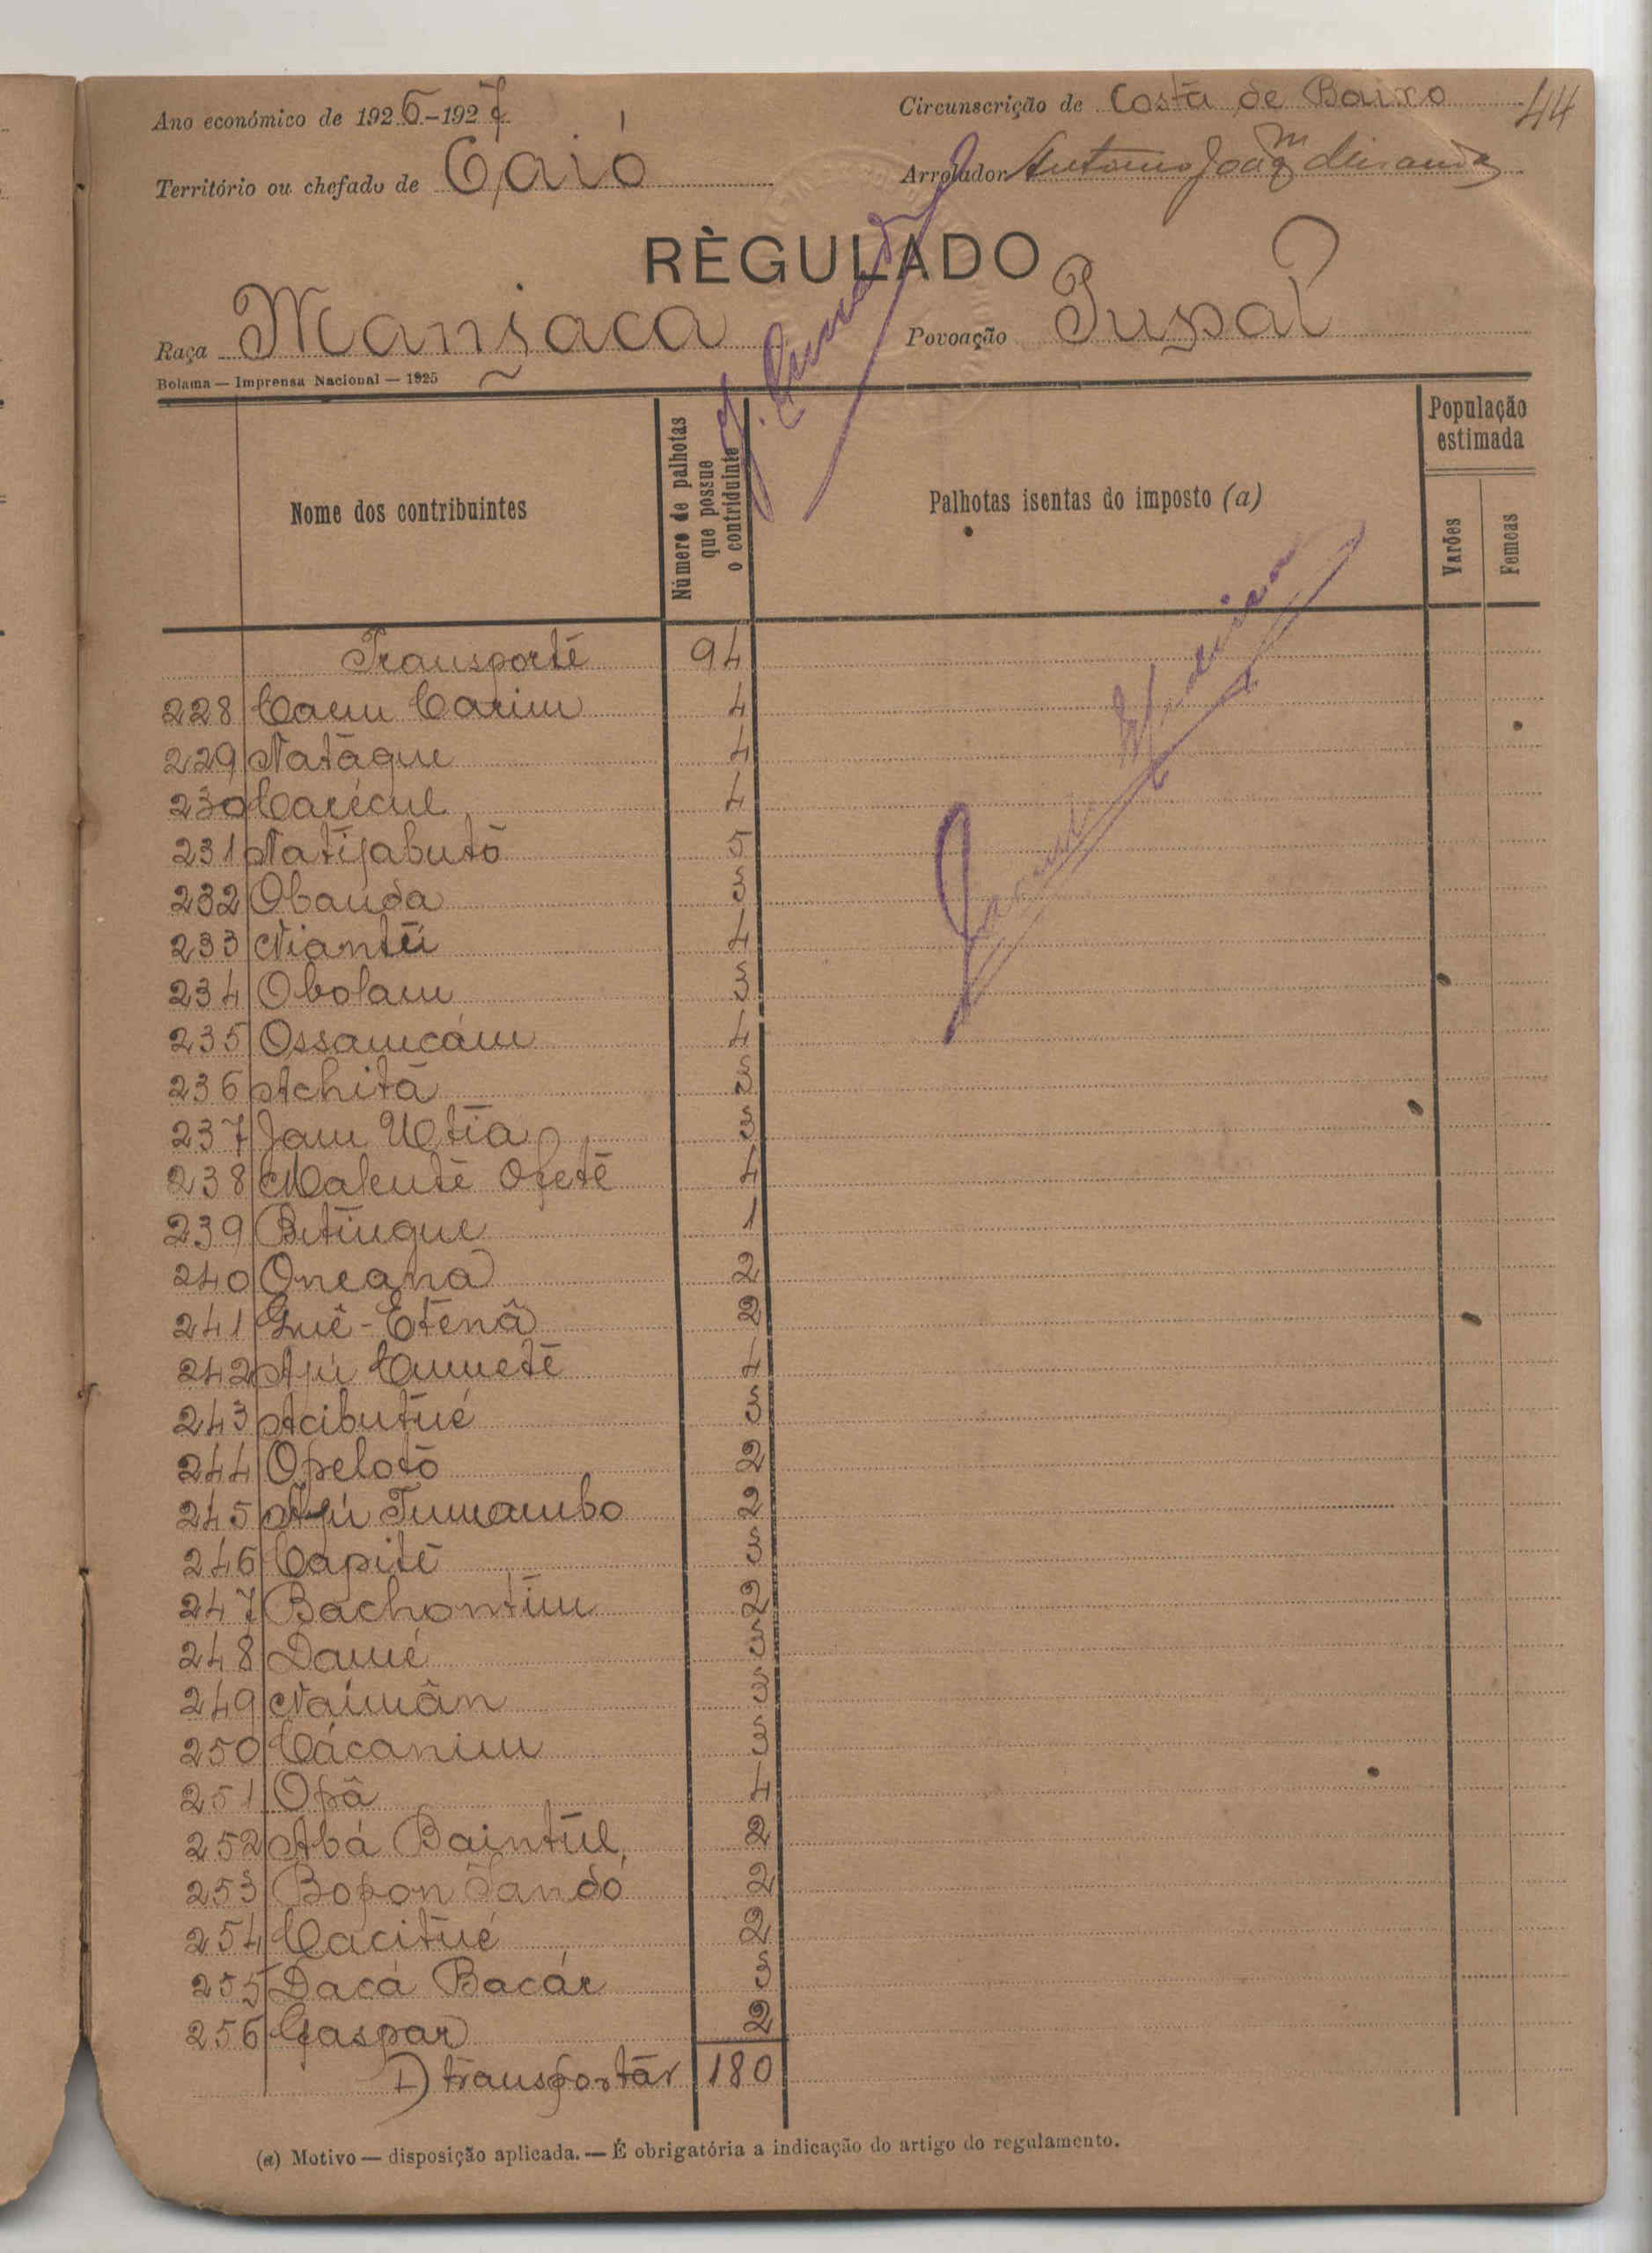 Ano económico de 1926-1927
Circunscrição de Costa de Baixo 44
Território ou chefado de Caió
Arrolador Antonio Joaqm
RÈGULADO
Raça Manjaca
Povoação
Bolama — Imprensa Nacional — 1925
Nome dos contribuintes
Número de palhotas
que possue
o contriduinte
Palhotas isentas do imposto (a)
População
estimada
Varões
Femeas
Transporte 94
228 Caem Carim 4
229 Natáque 4
230 Carécul 4
231 Natijabutó 5
232 Obanda 3
233 Niantú 4
234 Obolam 3
235 Ossamcám 4
236 Achitá 3
237 Jam Utia 3
238 Malenté Ofeté 4
239 Betinque 1
240 Oneana 2
241 Guê-Etenâ 2
242 Apú Cumeté 4
243 Acibutué 3
244 Opelotó 2
245 Apú Tumambo 2
246 Capité 3
247 Bachontim 2
248 Damé 3
249 Naimân 3
250 Cácanim 3
251 Opâ 4
252 Abá Baintul 2
253 Bopon Tandó 2
254 Cacitué 2
255 Dacá Bacár 3
256 Gaspar 2
A transportar 180
(a) Motivo — disposição aplicada. — É obrigatória a indicação do artigo do regulamento.